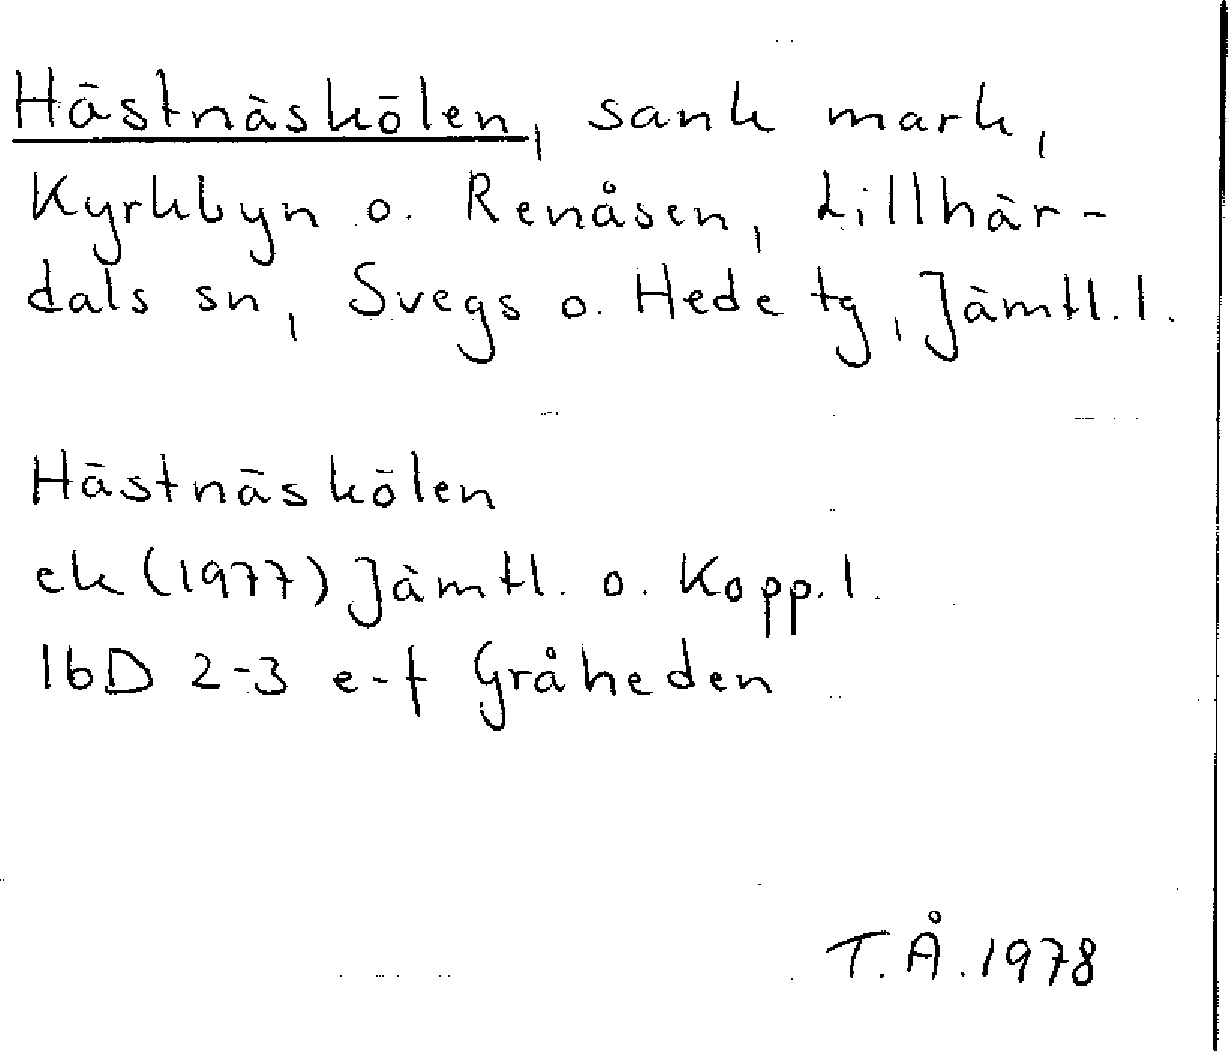 Hästnäskölen, sank mark,
Kyrkbyn o. Renåsen, Lillhär-
dals sn, Svegs o. Hede tg, Jämtl. l.
Hästnäskölen
ek (1977) Jämtl. o. Kopp. l.
16D 2-3 e-f Gråheden
T. Å. 1978